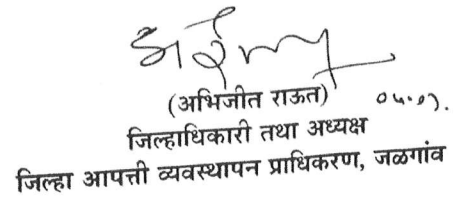 (अभिजीत राऊत)
जिल्हाधिकारी तथा अध्यक्ष
जिल्हा आपत्ती व्यवस्थापन प्राधिकरण, जळगांव